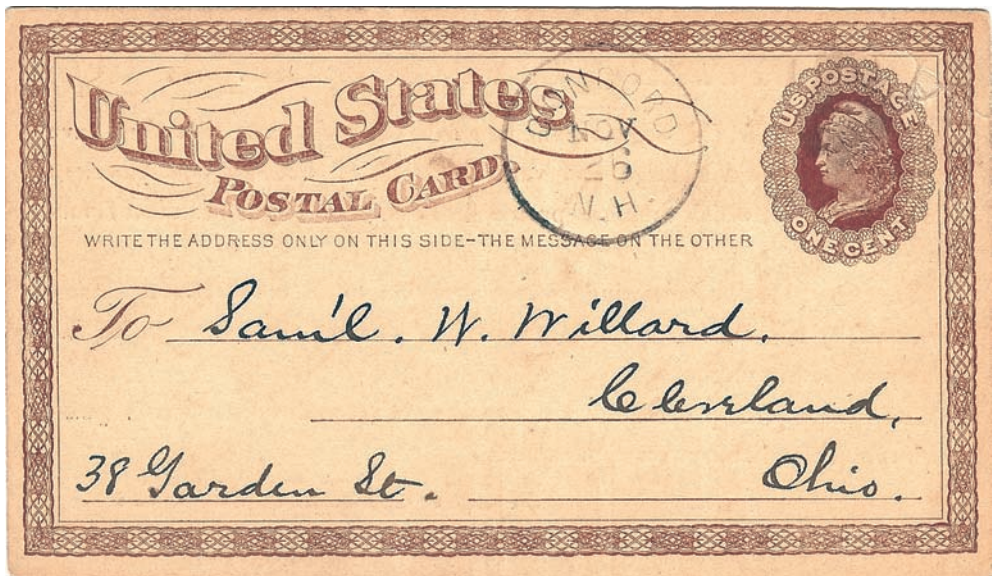 United States
POSTAL CARD
U.S. POSTAGE
ONE CENT
NOV
26
N.H.
WRITE THE ADDRESS ONLY ON THIS SIDE-THE MESSAGE ON THE OTHER
To Sam'l. W. Willard.
Cleveland,
38 Garden St.
Ohio.